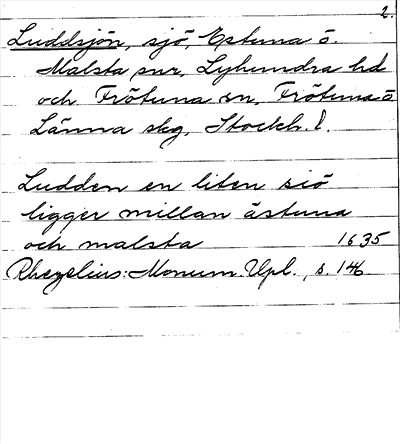 2.
Luddsjön, sjö, Estuna o.
Malsta snr, Lyhundra hd
och Frötuna sn, Frötuna o
Länna skg, Stockh. l.
Ludden en liten siö
ligger millan åstuna
och malsta 1635
Rhezelius: Monum. Upl., s. 146